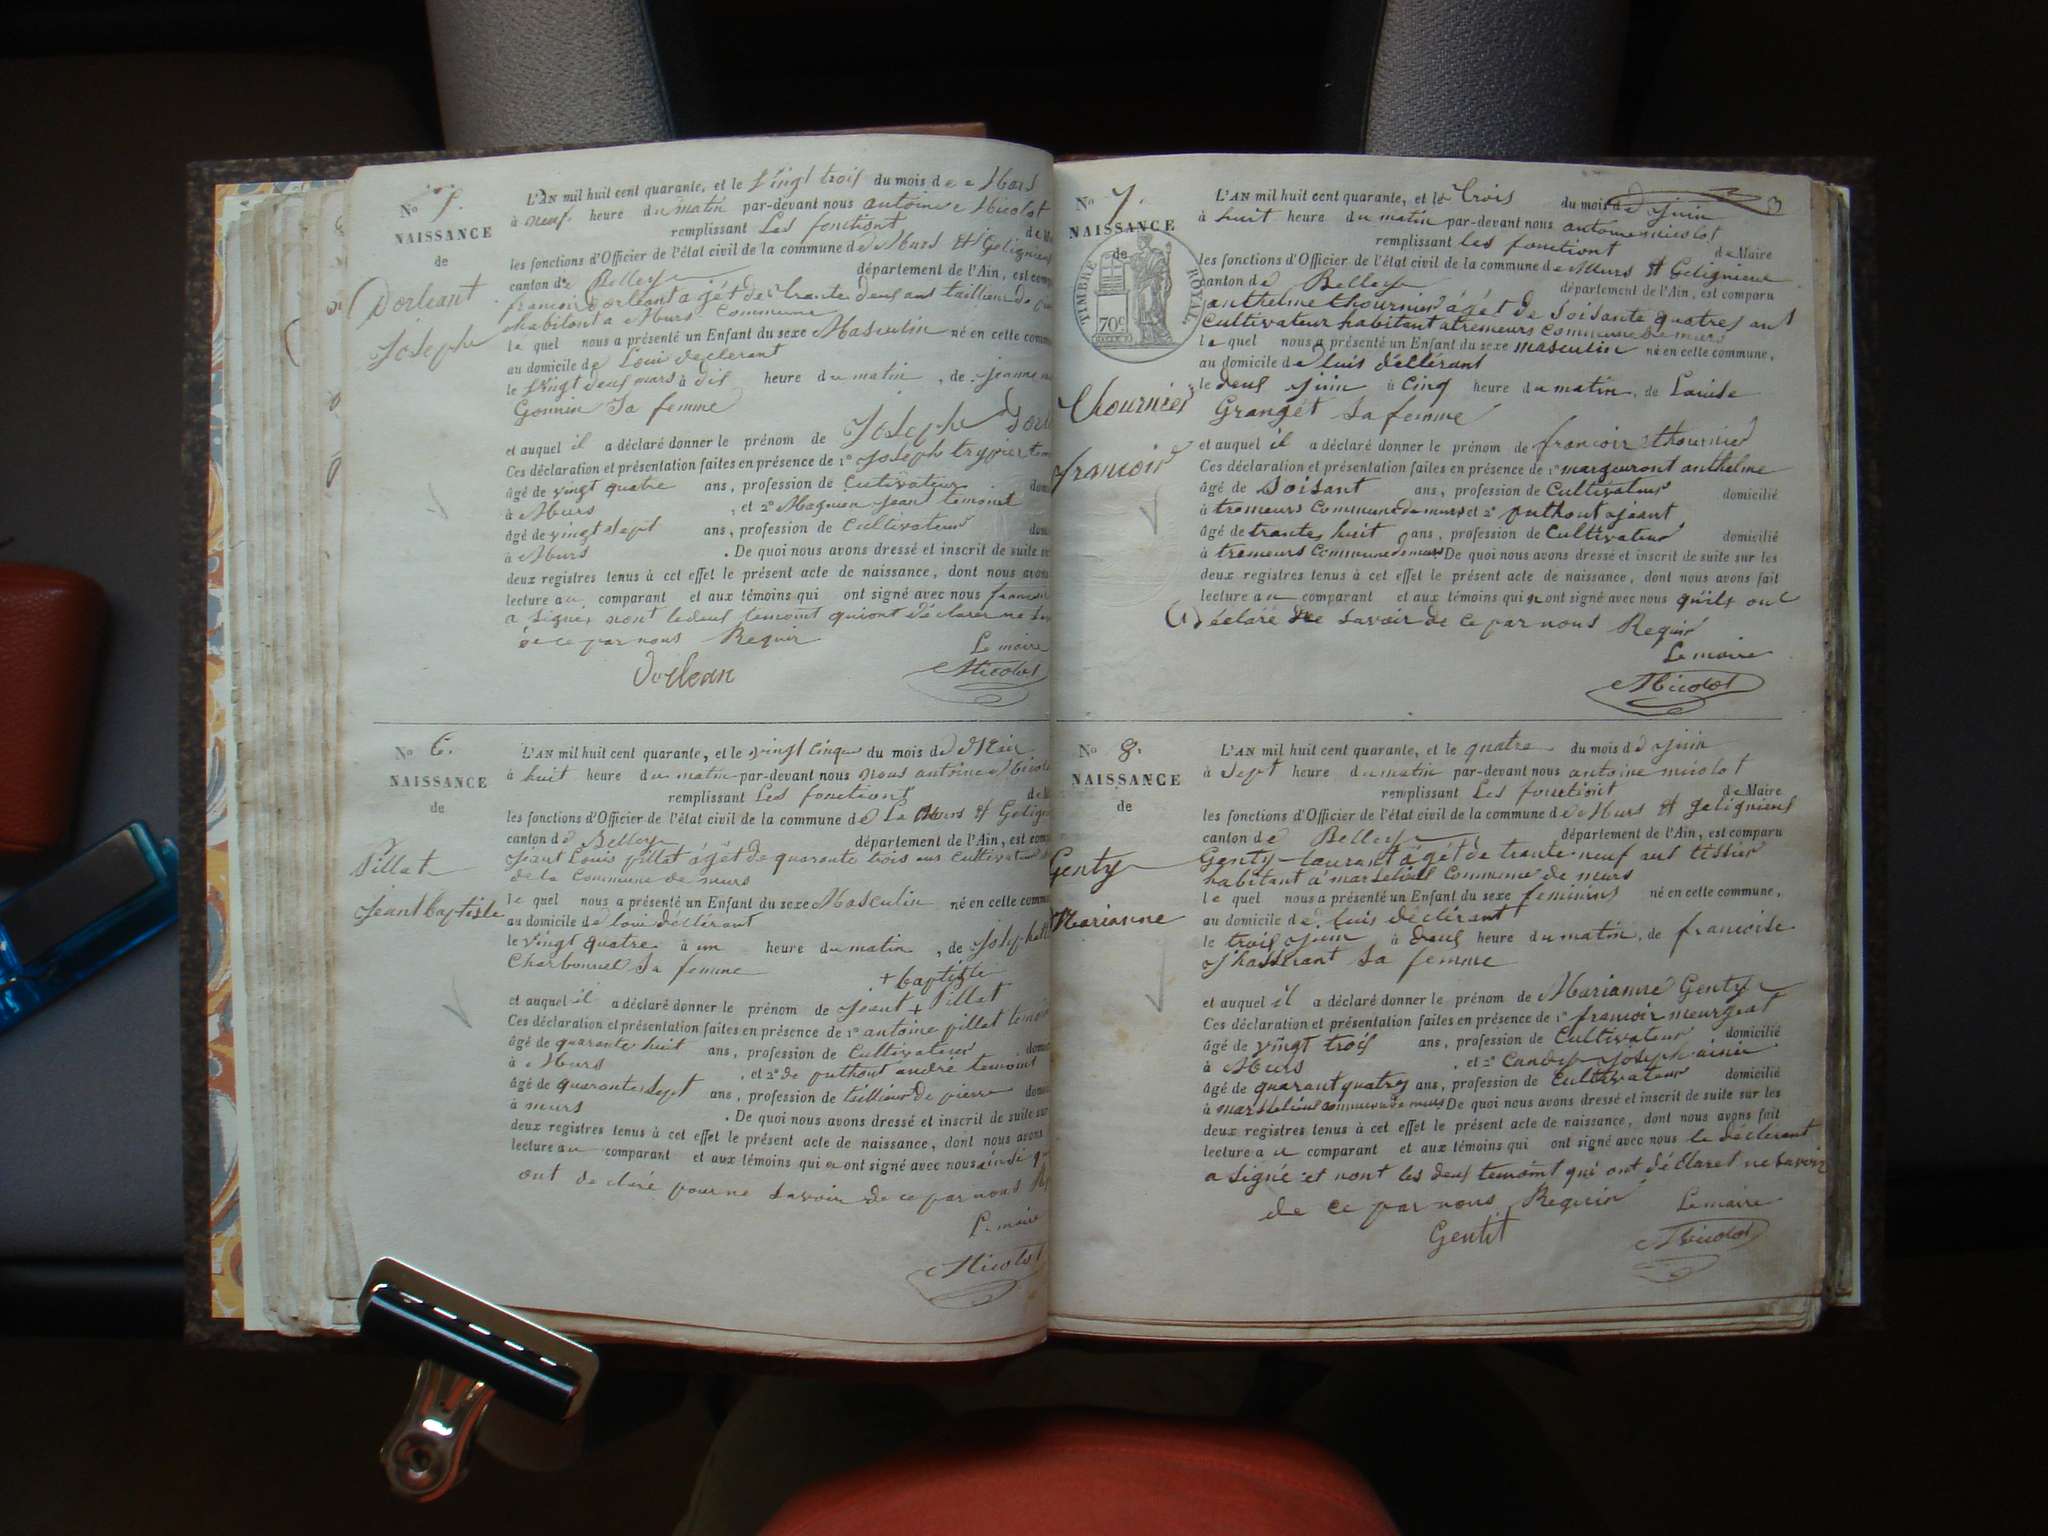 No 5.
NAISSANCE
de
Dorleant
Joseph
L'AN mil huit cent quarante, et le Vingt trois du mois de Mars
à neuf heure du matin par-devant nous antoine Nicolot
remplissant Les fonctiont
les fonctions d'Officier de l'état civil de la commune de Murs et Gelignieu
canton de Belley département de l'Ain, est comp
francois dorleant agét de trante deus ans taillieu de
habitant a Murs Commune
le quel nous a présenté un Enfant du sexe Masculin né en cette comm
au domicile de Loui declerant
le Vingt deus mars à dis heure du matin, de jeanne
Gonnin Sa femme
et auquel il a déclaré donner le prénom de Joseph Dorle
Ces déclaration et présentation faites en présence de 1º Joseph trypier tem
âgé de vingt quatre ans, profession de Cultivateur
à Murs, et 2º Magnien jeant temoint
âgé de vingt sept ans, profession de Cultivateur
à Murs. De quoi nous avons dressé et inscrit de suite
deux registres tenus à cet effet le présent acte de naissance, dont nous avons
lecture au comparant et aux témoins qui ont signé avec nous francois
a signé, nont ledeus temoint quiont déclarer ne
de ce par nous Requir
Le maire
Dorlean
Nicolot
No 6.
NAISSANCE
de
Pillat
jeant baptiste
L'AN mil huit cent quarante, et le vingt cinque du mois de Mai
à huit heure du matin par-devant nous nous antoine Nicolo
remplissant Les fonctiont
les fonctions d'Officier de l'état civil de la commune de Le Murs et Gelign
canton de Belley département de l'Ain, est comp
jeant Louis pillat agét de quarante trois ans Cultivateur
de la Commune de murs
le quel nous a présenté un Enfant du sexe Masculin né en cette comm
au domicile de loui déclérant
le vingt quatre à un heure du matin, de Josephat
Charbonnel Sa femme
+ baptiste
et auquel il a déclaré donner le prénom de jeant + Pillat
Ces déclaration et présentation faites en présence de 1º antoine pillat temoin
âgé de quarante huit ans, profession de Cultivateur
à Murs, et 2º de puthout andré temoint
âgé de quarante sept ans, profession de taillieur de pierre
à murs. De quoi nous avons dressé et inscrit de suite sur
deux registres tenus à cet effet le présent acte de naissance, dont nous avons
lecture au comparant et aux témoins qui n ont signé avec nous ainsi qu
ont declaré pour ne savoir de ce par nous
Le maire
Nicolot
3
No 7.
NAISSANCE
de
TIMBRE ROYAL
70c
Thournier
francois
L'AN mil huit cent quarante, et le trois du mois de juin
à huit heure du matin par-devant nous antoine nicolot
remplissant les fonctiont de Maire
les fonctions d'Officier de l'état civil de la commune de Murs et Gelignieu
canton de Belley département de l'Ain, est comparu
anthelme thournier agét de soisante quatres ans
Cultivateur habitant a tremeurs Commune de murs
le quel nous a présenté un Enfant du sexe masculin né en cette commune,
au domicile de luis déllérant
le deus juin à Cinq heure du matin, de Louise
Grangét Sa femme
et auquel il a déclaré donner le prénom de francoir thournier
Ces déclaration et présentation faites en présence de 1º margueront anthelme
âgé de soisant ans, profession de Cultivateur domicilié
à tremeurs Commune de murs et 2º puthout jeant
âgé de trante huit ans, profession de Cultivateur domicilié
à tremeurs Commune de murs De quoi nous avons dressé et inscrit de suite sur les
deux registres tenus à cet effet le présent acte de naissance, dont nous avons fait
lecture au comparant et aux témoins qui n ont signé avec nous quils ont
déclaré ne savoir de ce par nous Requir
Le maire
Nicolot
No 8.
NAISSANCE
de
Genty
Marianne
L'AN mil huit cent quarante, et le quatre du mois de juin
à sept heure du matin par-devant nous antoine nicolot
remplissant Les fonctiont de Maire
les fonctions d'Officier de l'état civil de la commune de Murs et geligniens
canton de Belley département de l'Ain, est comparu
Genty laurant agét de trante neuf ans tissier
habitant a marselieus Commune de murs
le quel nous a présenté un Enfant du sexe feminins né en cette commune,
au domicile de luis déclérant
le trois juin à deus heure du matin, de francoise
sa femme
et auquel il a déclaré donner le prénom de Marianne Genty
Ces déclaration et présentation faites en présence de 1º francoir meurgeat
âgé de vingt trois ans, profession de Cultivateur domicilié
à Murs, et 2º Candy joseph ainé
âgé de quarant quatres ans, profession de Cultivateur domicilié
à marselieus Commune de murs De quoi nous avons dressé et inscrit de suite sur les
deux registres tenus à cet effet le présent acte de naissance, dont nous avons fait
lecture au comparant et aux témoins qui ont signé avec nous le déclérant
a signé et nont les deus temoint qui ont déclaret ne savoir
de ce par nous Requir Le maire
Gentit
Nicolot